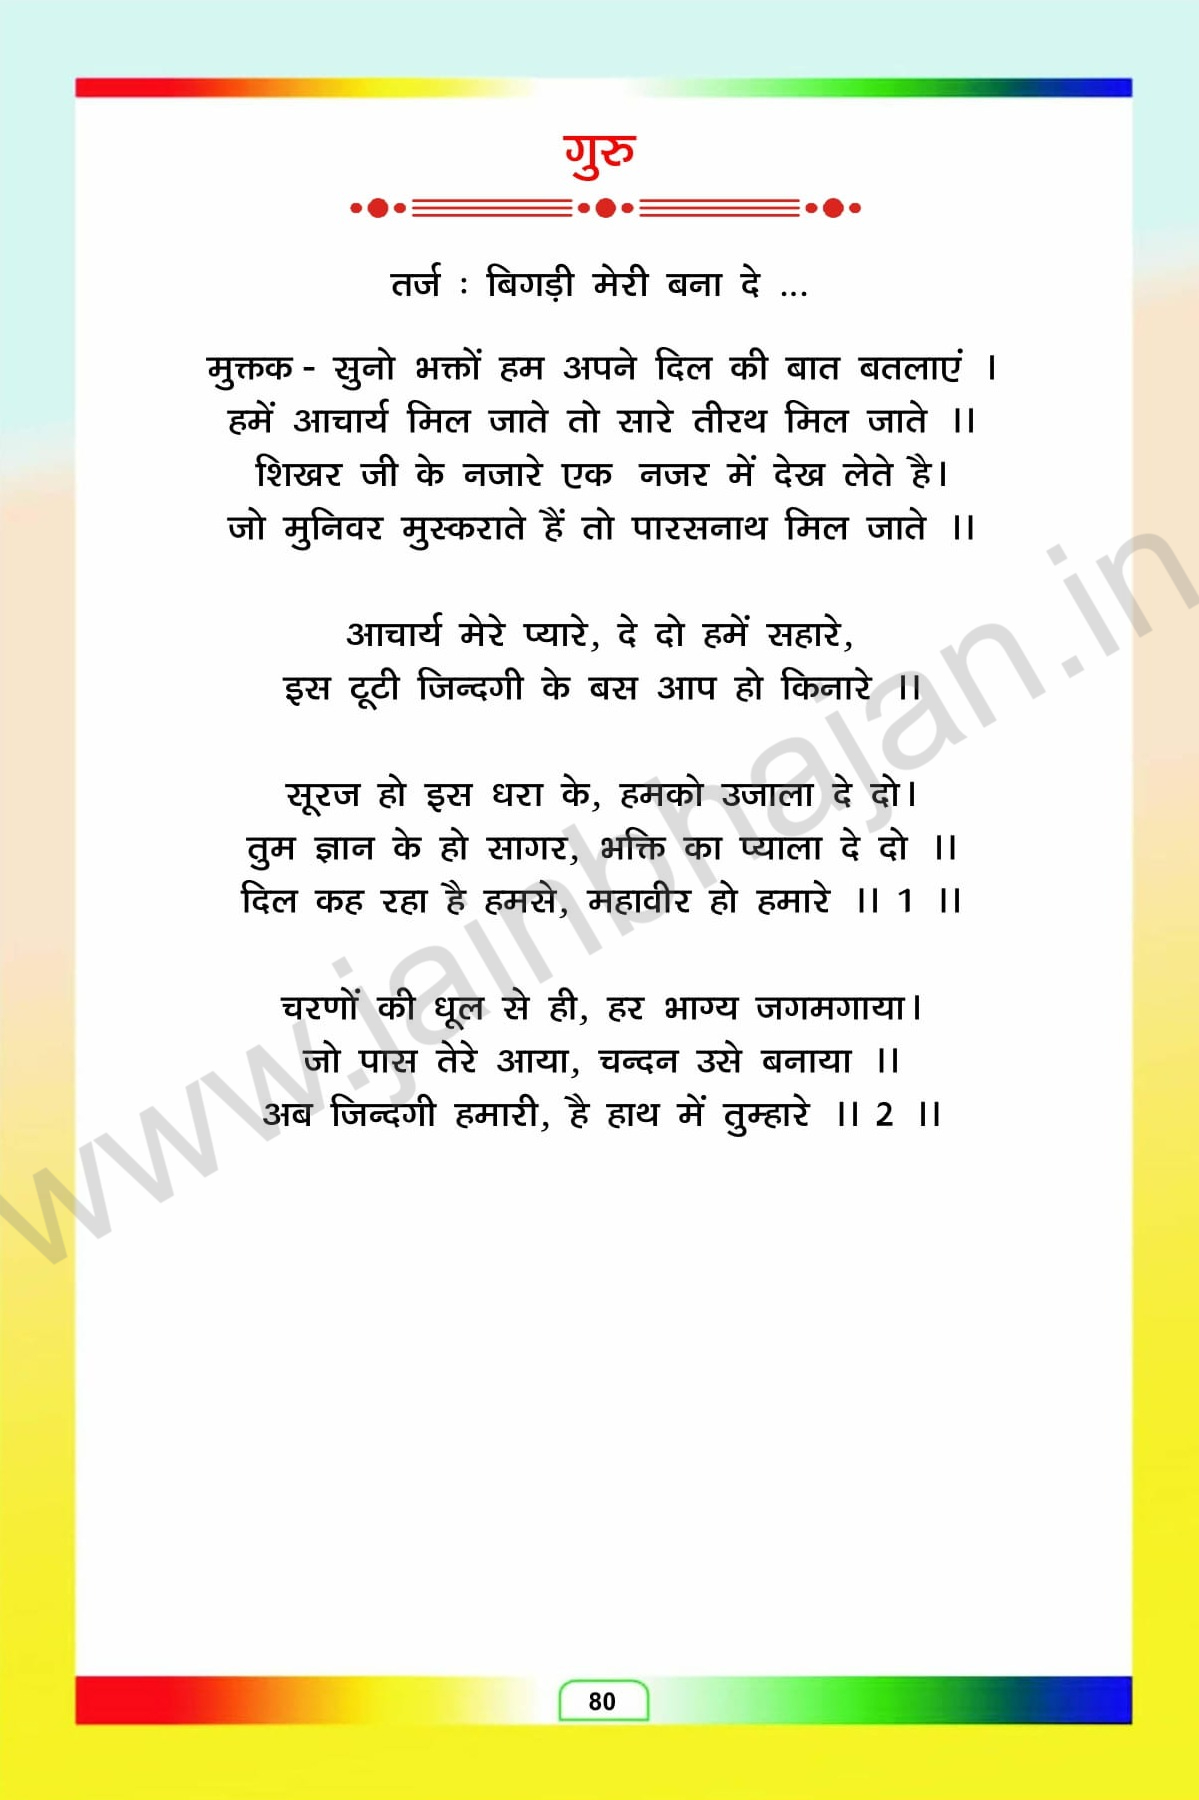 गुरु
तर्ज : बिगड़ी मेरी बना दे ...
मुक्तक - सुनो भक्तों हम अपने दिल की बात बतलाएं ।
हमें आचार्य मिल जाते तो सारे तीरथ मिल जाते ।।
शिखर जी के नजारे एक नजर में देख लेते है।
जो मुनिवर मुस्कराते हैं तो पारसनाथ मिल जाते ।।
आचार्य मेरे प्यारे, दे दो हमें सहारे,
इस टूटी जिन्दगी के बस आप हो किनारे ।।
सूरज हो इस धरा के, हमको उजाला दे दो।
तुम ज्ञान के हो सागर, भक्ति का प्याला दे दो ।।
दिल कह रहा है हमसे, महावीर हो हमारे ।। 1 ।।
चरणों की धूल से ही, हर भाग्य जगमगाया।
जो पास तेरे आया, चन्दन उसे बनाया ।।
अब जिन्दगी हमारी, है हाथ में तुम्हारे ।। 2 ।।
www.jainbhajan.in
80